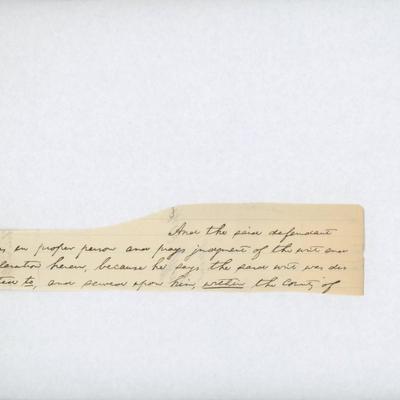 And the said defendant
in proper person and prays judgment of the writ and
laration herein, because he says the said writ was des
ted to, and served upon him, within the County of